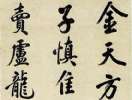 金天方
子慎隹
賣盧龍